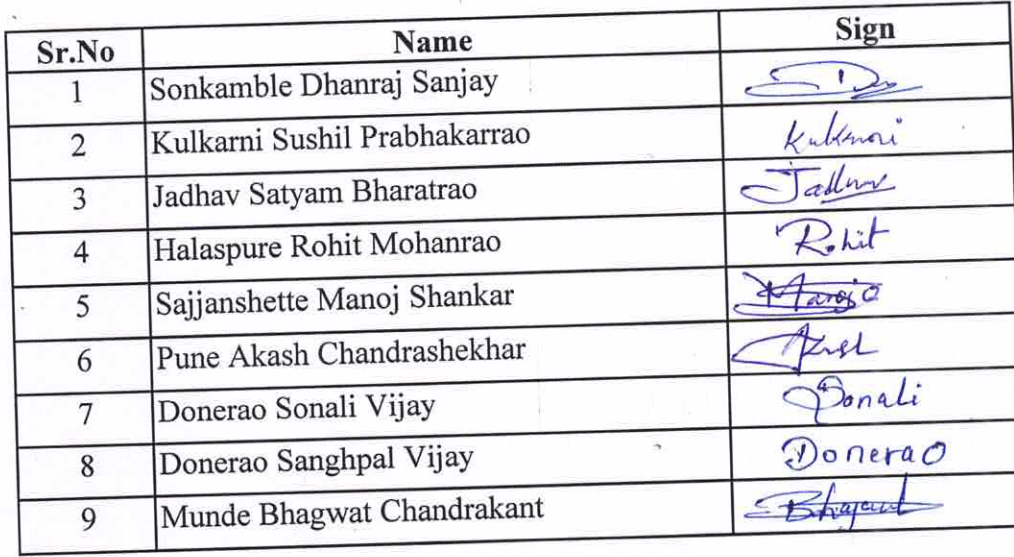 Sr.No Name Sign
1 Sonkamble Dhanraj Sanjay
2 Kulkarni Sushil Prabhakarrao Kulkarni
3 Jadhav Satyam Bharatrao Jadhav
4 Halaspure Rohit Mohanrao Rohit
5 Sajjanshette Manoj Shankar Manoj
6 Pune Akash Chandrashekhar
7 Donerao Sonali Vijay Sonali
8 Donerao Sanghpal Vijay Donerao
9 Munde Bhagwat Chandrakant